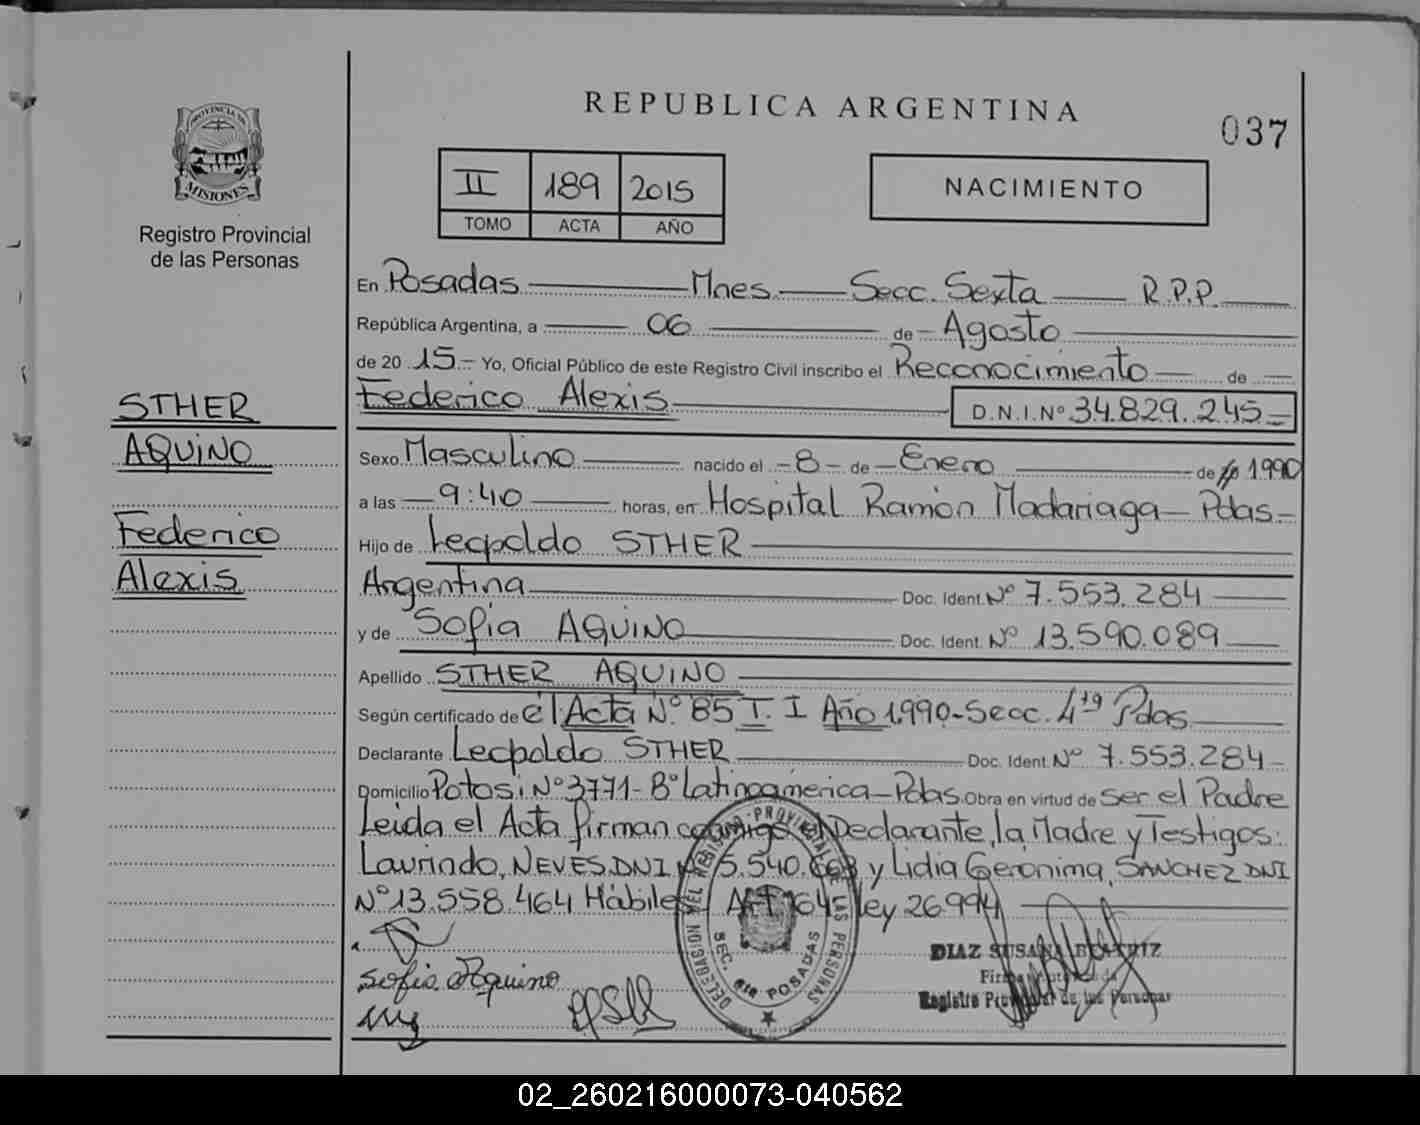 REPUBLICA ARGENTINA
037
PROVINCIA DE
MISIONES
Registro Provincial
de las Personas
II 189 2015
TOMO ACTA AÑO
NACIMIENTO
En Posadas Mnes. Secc. Sexta R.P.P.
República Argentina, a 06 de Agosto
de 20 15.- Yo, Oficial Público de este Registro Civil inscribo el Reconocimiento de
Federico Alexis D.N.I.Nº 34.829.245
Sexo Masculino nacido el -8- de Enero de 1990
a las 9:40 horas, en Hospital Ramón Madariaga - Pdas -
Hijo de Leopoldo STHER
Argentina Doc. Ident. Nº 7.553.284
y de Sofia AQUINO Doc. Ident. Nº 13.590.089
Apellido STHER AQUINO
Según certificado de el Acta Nº 85 T. I Año 1.990 - Secc. 4ta Pdas
Declarante Leopoldo STHER Doc. Ident. Nº 7.553.284 -
Domicilio Potosi Nº 3771 - Bº Latinoamerica - Pdas. Obra en virtud de ser el Padre
Leida el Acta firman conmigo el Declarante, la Madre y Testigos:
Laurindo, NEVES, DNI Nº 5.540.663 y Lidia Geronima, SANCHEZ DNI
Nº 13.558.464 Hábiles Art 64 ley 26.994
STHER
AQUINO
Federico
Alexis
Sofia Aquino
DELEGACION DEL REGISTRO PROVINCIAL DE LAS PERSONAS
SEC. 6ta POSADAS
DIAZ SUSANA BEATRIZ
Firma Autorizada
Registro Provincial de las Personas
02_260216000073-040562